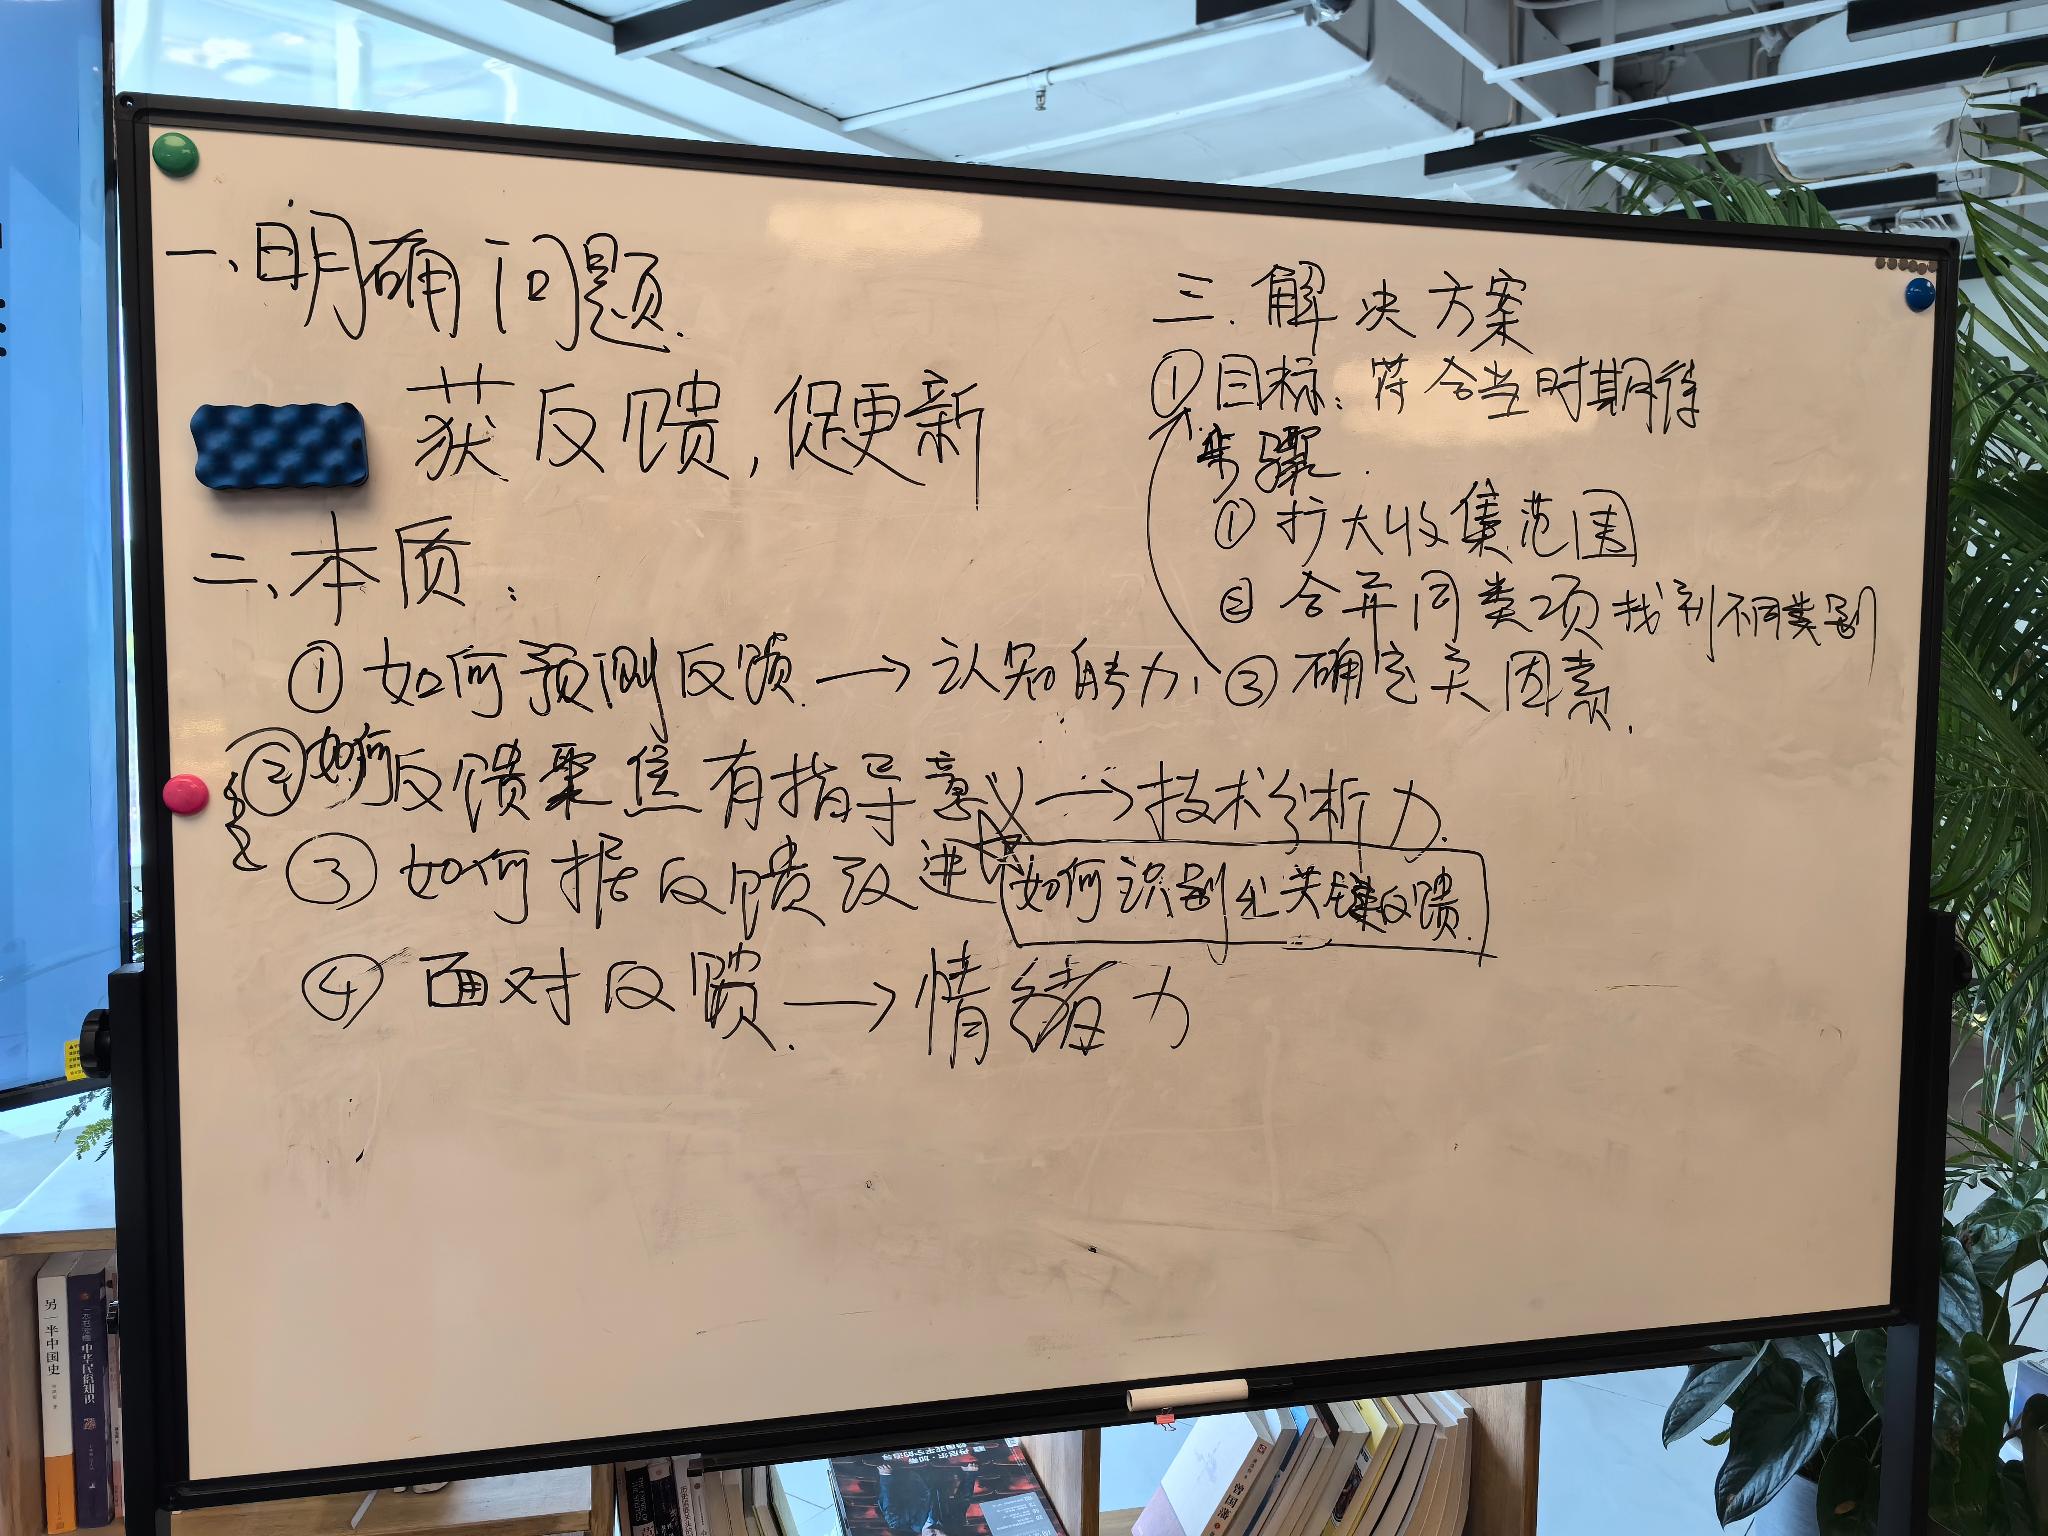 一、明确问题.
获反馈,促更新
二、本质:
① 如何预测反馈 → 认知能力
② 如何反馈聚焦有指导意义 → 技术分析力.
③ 如何据反馈改进
如何识别出关键反馈.
④ 面对反馈. → 情绪力
三.解决方案
① 目标:符合当时期待
步骤.
① 扩大收集范围
② 合并同类项 找到不同类别
③ 确定关因素.
另一半中国史
中华民俗知识
曾国藩